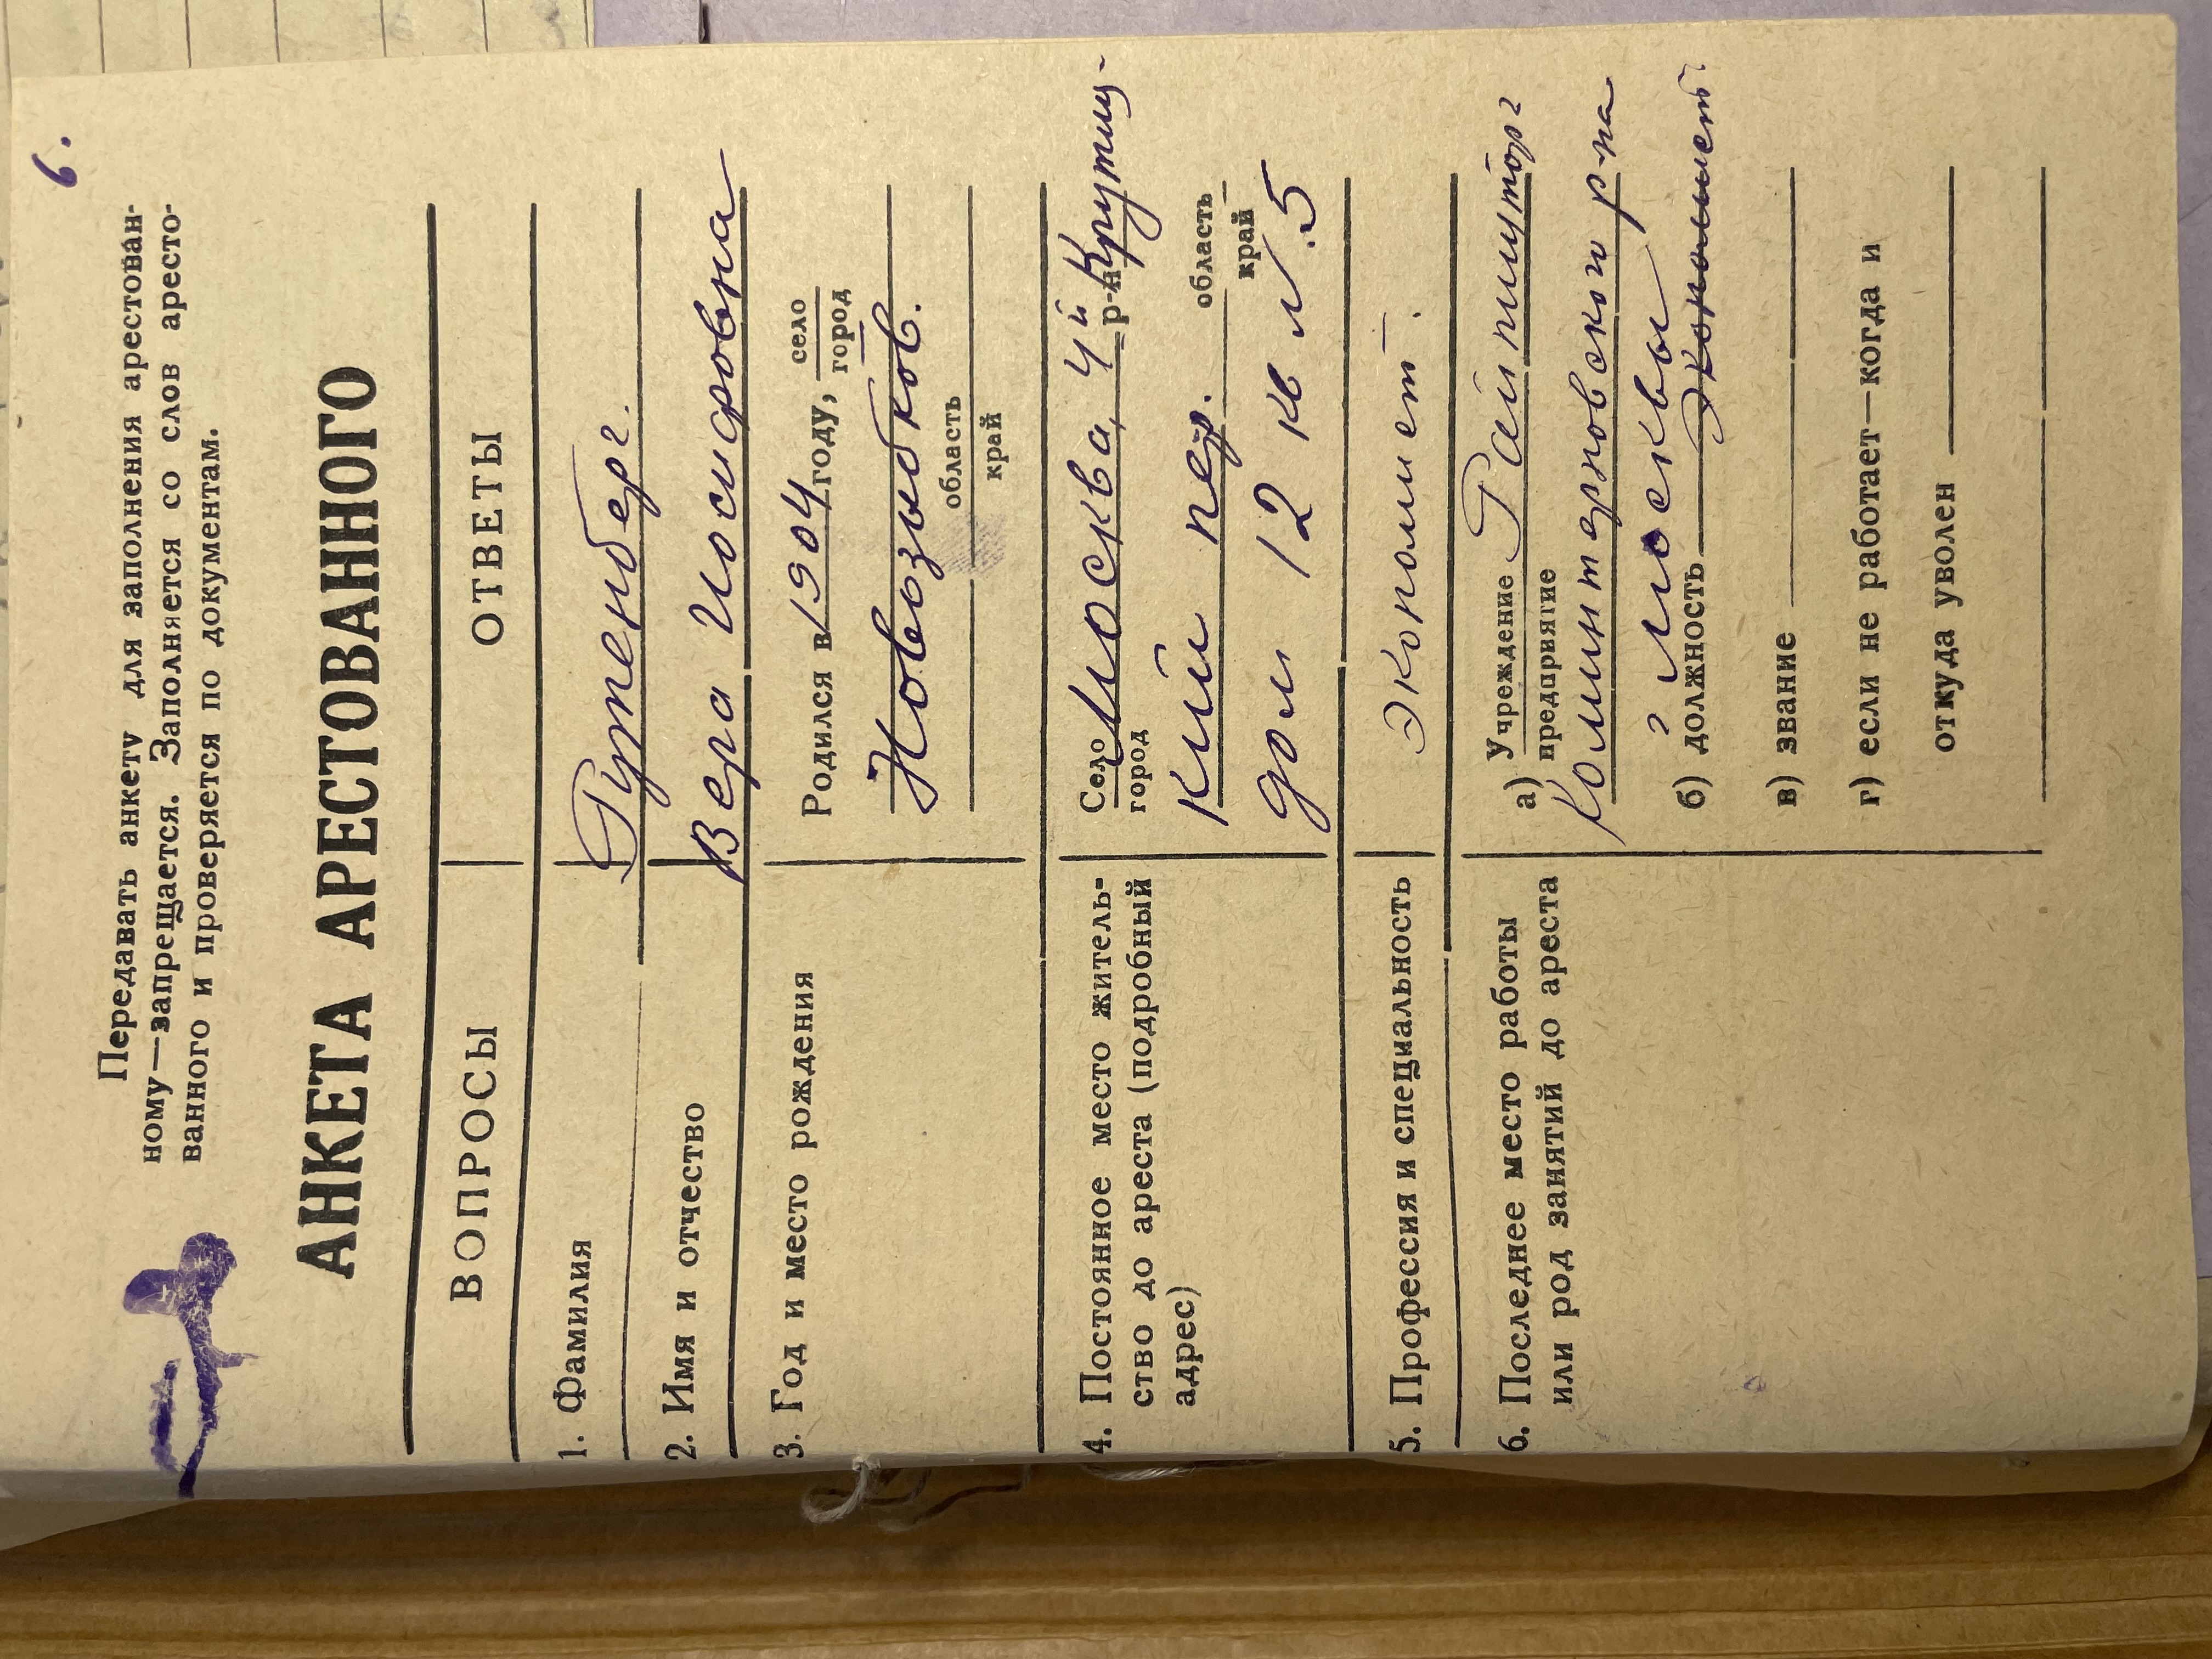 6.
Передавать анкету для заполнения арестован-
ному—запрещается. Заполняется со слов аресто-
ванного и проверяется по документам.
АНКЕТА АРЕСТОВАННОГО
ВОПРОСЫ ОТВЕТЫ
1. Фамилия Гутенберг.
2. Имя и отчество Вера Иосифовна
3. Год и место рождения Родился в 1904 году, село город
Новозыбков.
область край
4. Постоянное место житель-
ство до ареста (подробный
адрес)
Село город Москва, 4й р-н Крутиц-
кий пер. область край
дом 12 кв № 5
5. Профессия и специальность Экономист.
6. Последнее место работы
или род занятий до ареста
а) Учреждение предприятие Райпищторг
Коминтерновского р-на
г Москвы
б) должность Экономист.
в) звание
г) если не работает—когда и
откуда уволен